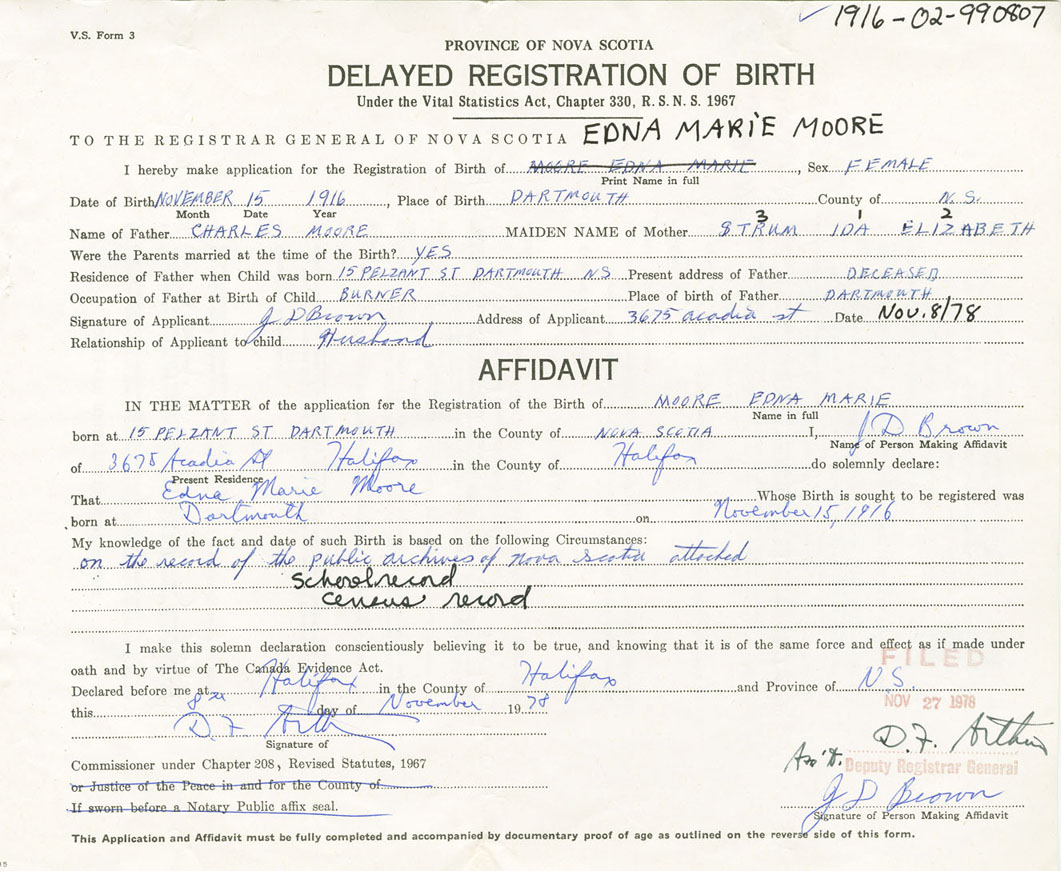 ✓ 1916-02-990807
V.S. Form 3
PROVINCE OF NOVA SCOTIA
DELAYED REGISTRATION OF BIRTH
Under the Vital Statistics Act, Chapter 330, R.S.N.S. 1967
TO THE REGISTRAR GENERAL OF NOVA SCOTIA EDNA MARIE MOORE
I hereby make application for the Registration of Birth of MOORE EDNA MARIE, Sex FEMALE
Print Name in full
Date of Birth NOVEMBER 15 1916, Place of Birth DARTMOUTH County of N.S.
Month Date Year 3 1 2
Name of Father CHARLES MOORE MAIDEN NAME of Mother STRUM IDA ELIZABETH
Were the Parents married at the time of the Birth? YES
Residence of Father when Child was born 15 PELZANT ST DARTMOUTH NS Present address of Father DECEASED
Occupation of Father at Birth of Child BURNER Place of birth of Father DARTMOUTH
Signature of Applicant J D Brown Address of Applicant 3675 acadia st Date Nov. 8/78
Relationship of Applicant to child Husband
AFFIDAVIT
IN THE MATTER of the application for the Registration of the Birth of MOORE EDNA MARIE
Name in full
born at 15 PELZANT ST DARTMOUTH in the County of NOVA SCOTIA I, J D Brown
Name of Person Making Affidavit
of 3675 Acadia St Halifax in the County of Halifax do solemnly declare:
Present Residence
That Edna Marie Moore Whose Birth is sought to be registered was
born at Dartmouth on November 15, 1916
My knowledge of the fact and date of such Birth is based on the following Circumstances:
on the record of the public archives of nova scotia attached
school record
census record
I make this solemn declaration conscientiously believing it to be true, and knowing that it is of the same force and effect as if made under
oath and by virtue of The Canada Evidence Act.
FILED
Declared before me at Halifax in the County of Halifax and Province of N.S.
this 8 day of November 1978
NOV 27 1978
D.F. Arthur
D.F. Arthur
Signature of
Commissioner under Chapter 208, Revised Statutes, 1967
Ass't. Deputy Registrar General
or Justice of the Peace in and for the County of
If sworn before a Notary Public affix seal.
J D Brown
Signature of Person Making Affidavit
This Application and Affidavit must be fully completed and accompanied by documentary proof of age as outlined on the reverse side of this form.